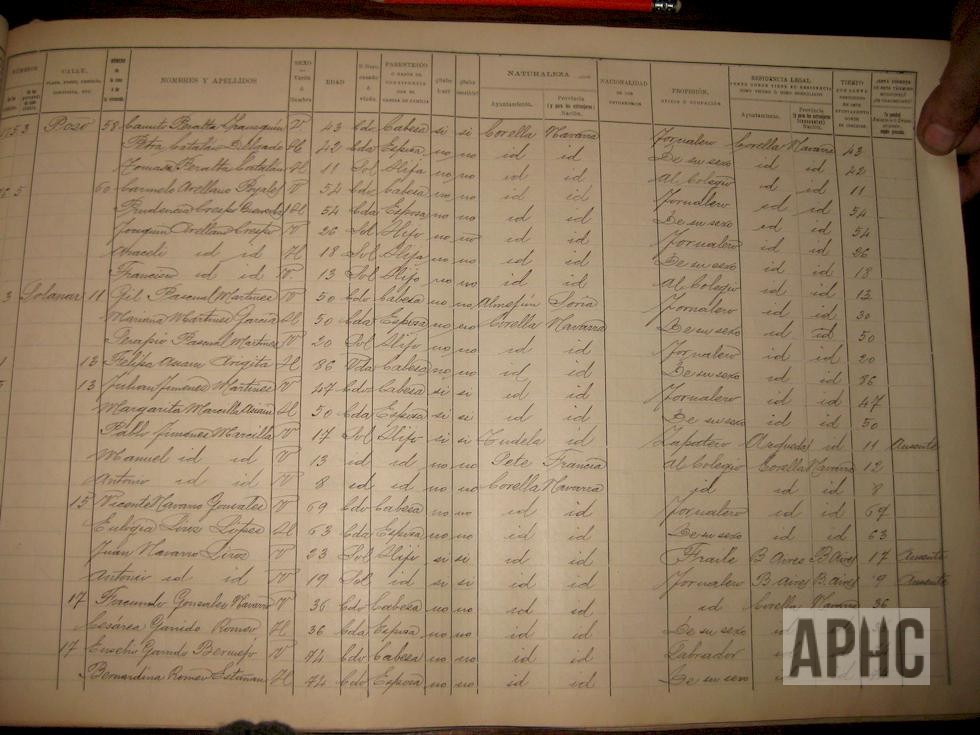 NÚMEROS CALLE, NOMBRES Y APELLIDOS SEXO Varón ó Hembra EDAD PARENTESCO Ó RAZÓN DE CONVIVENCIA CON EL CABEZA DE FAMILIA ¿Sabe leer? ¿Sabe escribir? NATURALEZA Ayuntamiento. Provincia Nación. NACIONALIDAD DE LOS EXTRANJEROS PROFESIÓN, OFICIO Ú OCUPACIÓN RESIDENCIA LEGAL Ayuntamiento. Provincia Nación. TIEMPO
Pozo 58 Camilo Peralta V 43 Cdo Cabeza si si Corella Navarra Jornalero Corella Navarra 43
Petra Catalan Delgado H 42 Cda Esposa no no id id De su sexo id id 42
Tomasa Peralta Catalan H 11 Sol Hija no no id id Al Colegio id id 11
60 Carmelo Arellano V 54 Cdo Cabeza no no id id Jornalero id id 54
Prudencia Crespo H 54 Cda Esposa no no id id De su sexo id id 54
Joaquin Arellano Crespo V 26 Sol Hijo no no id id Jornalero id id 26
Araceli id id H 18 Sol Hija no no id id De su sexo id id
Francisco id id V 13 Sol Hijo no no id id Al Colegio id id 13
3 Solanar 11 Gil Pascual Martinez V 50 Cdo Cabeza no no Soria Jornalero id id 30
Mariana Martinez Garcia H 50 Cda Esposa no no Corella Navarra De su sexo id id 50
Serapio Pascual Martinez V 20 Sol Hijo no no id id Jornalero id id 20
13 Felipa H 86 Vda Cabeza no no id id De su sexo id id 86
13 Julian Jimenez Martinez V 47 Cdo Cabeza si si id id Jornalero id id 47
Margarita Marcilla H 50 Cda Esposa si si id id De su sexo id id 50
Pablo Jimenez Marcilla V 17 Sol Hijo si si Tudela id Zapatero Arguedas id 11 Ausente
Manuel id id V 13 id id no no Francia Al Colegio Corella Navarra 12
Antonio id id V 8 id id no no Corella Navarra id id id 8
15 Vicente Navarro Gonzales V 69 Cdo Cabeza no no id id Jornalero id id 69
Eulogia Liroz Lopez H 63 Cda Esposa no no id id De su sexo id id 63
Juan Navarro Liroz V 23 Sol Hijo si si id id Fraile B Aires B Aires 17 Ausente
Antonio id id V 19 Sol id si si id id Jornalero B Aires B Aires 9 Ausente
17 Facundo Gonzales Navarro V 36 Cdo Cabeza no no id id id Corella Navarra 36
Cesárea Garrido Romero H 36 Cda Esposa no no id id De su sexo id
17 Eusebio Garrido Bermejo V 74 Cdo Cabeza no no id id Labrador
Bernardina Romero H 74 Cda Esposa no no id id De su sexo
APHC